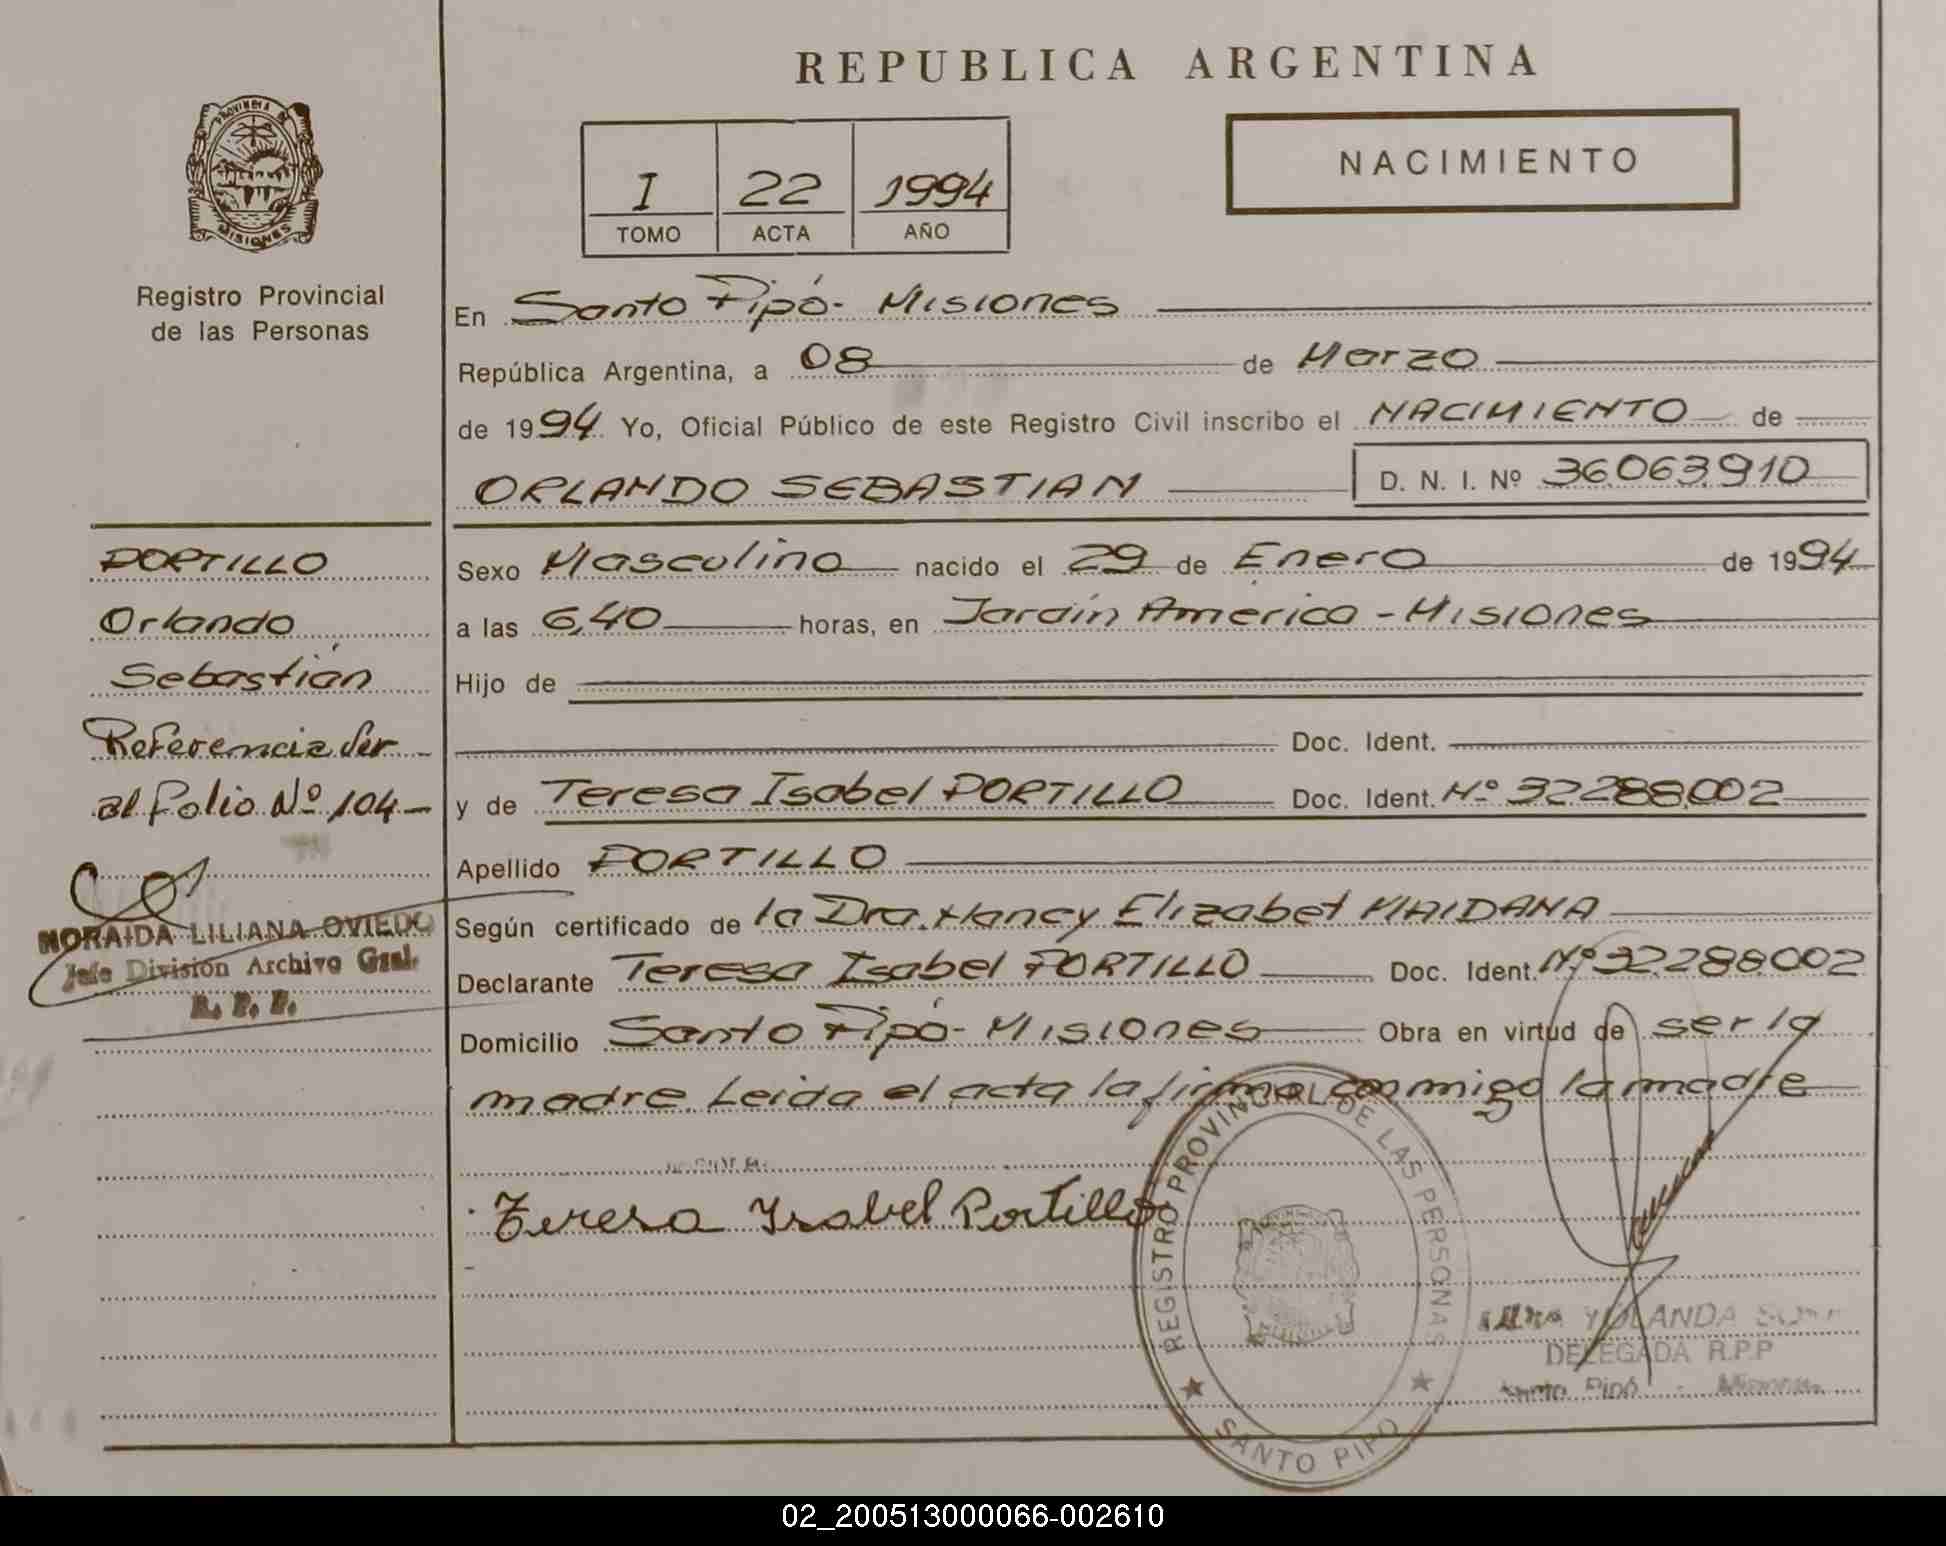 REPUBLICA ARGENTINA
PROVINCIA DE
MISIONES
Registro Provincial
de las Personas
I 22 1994
TOMO ACTA AÑO
NACIMIENTO
En Santo Pipó - Misiones
República Argentina, a 08 de Marzo
de 1994 Yo, Oficial Público de este Registro Civil inscribo el NACIMIENTO de
ORLANDO SEBASTIAN D. N. I. Nº 36.063.910
PORTILLO
Orlando
Sebastián
Referencia Ver
al folio Nº 104-
NORAIDA LILIANA OVIEDO
Jefe División Archivo Gral.
R. P. P.
Sexo Masculino nacido el 29 de Enero de 1994
a las 6,40 horas, en Jardín América - Misiones
Hijo de
Doc. Ident.
y de Teresa Isabel PORTILLO Doc. Ident. Nº 32.288.002
Apellido PORTILLO
Según certificado de la Dra. Nancy Elizabet MAIDANA
Declarante Teresa Isabel PORTILLO Doc. Ident. Nº 32.288.002
Domicilio Santo Pipó - Misiones Obra en virtud de ser la
madre. Leida el acta la firma conmigo la madre
Teresa Isabel Portillo
REGISTRO PROVINCIAL DE LAS PERSONAS
SANTO PIPO
YOLANDA
DELEGADA R.P.P
Santo Pipó - Misiones
02_200513000066-002610